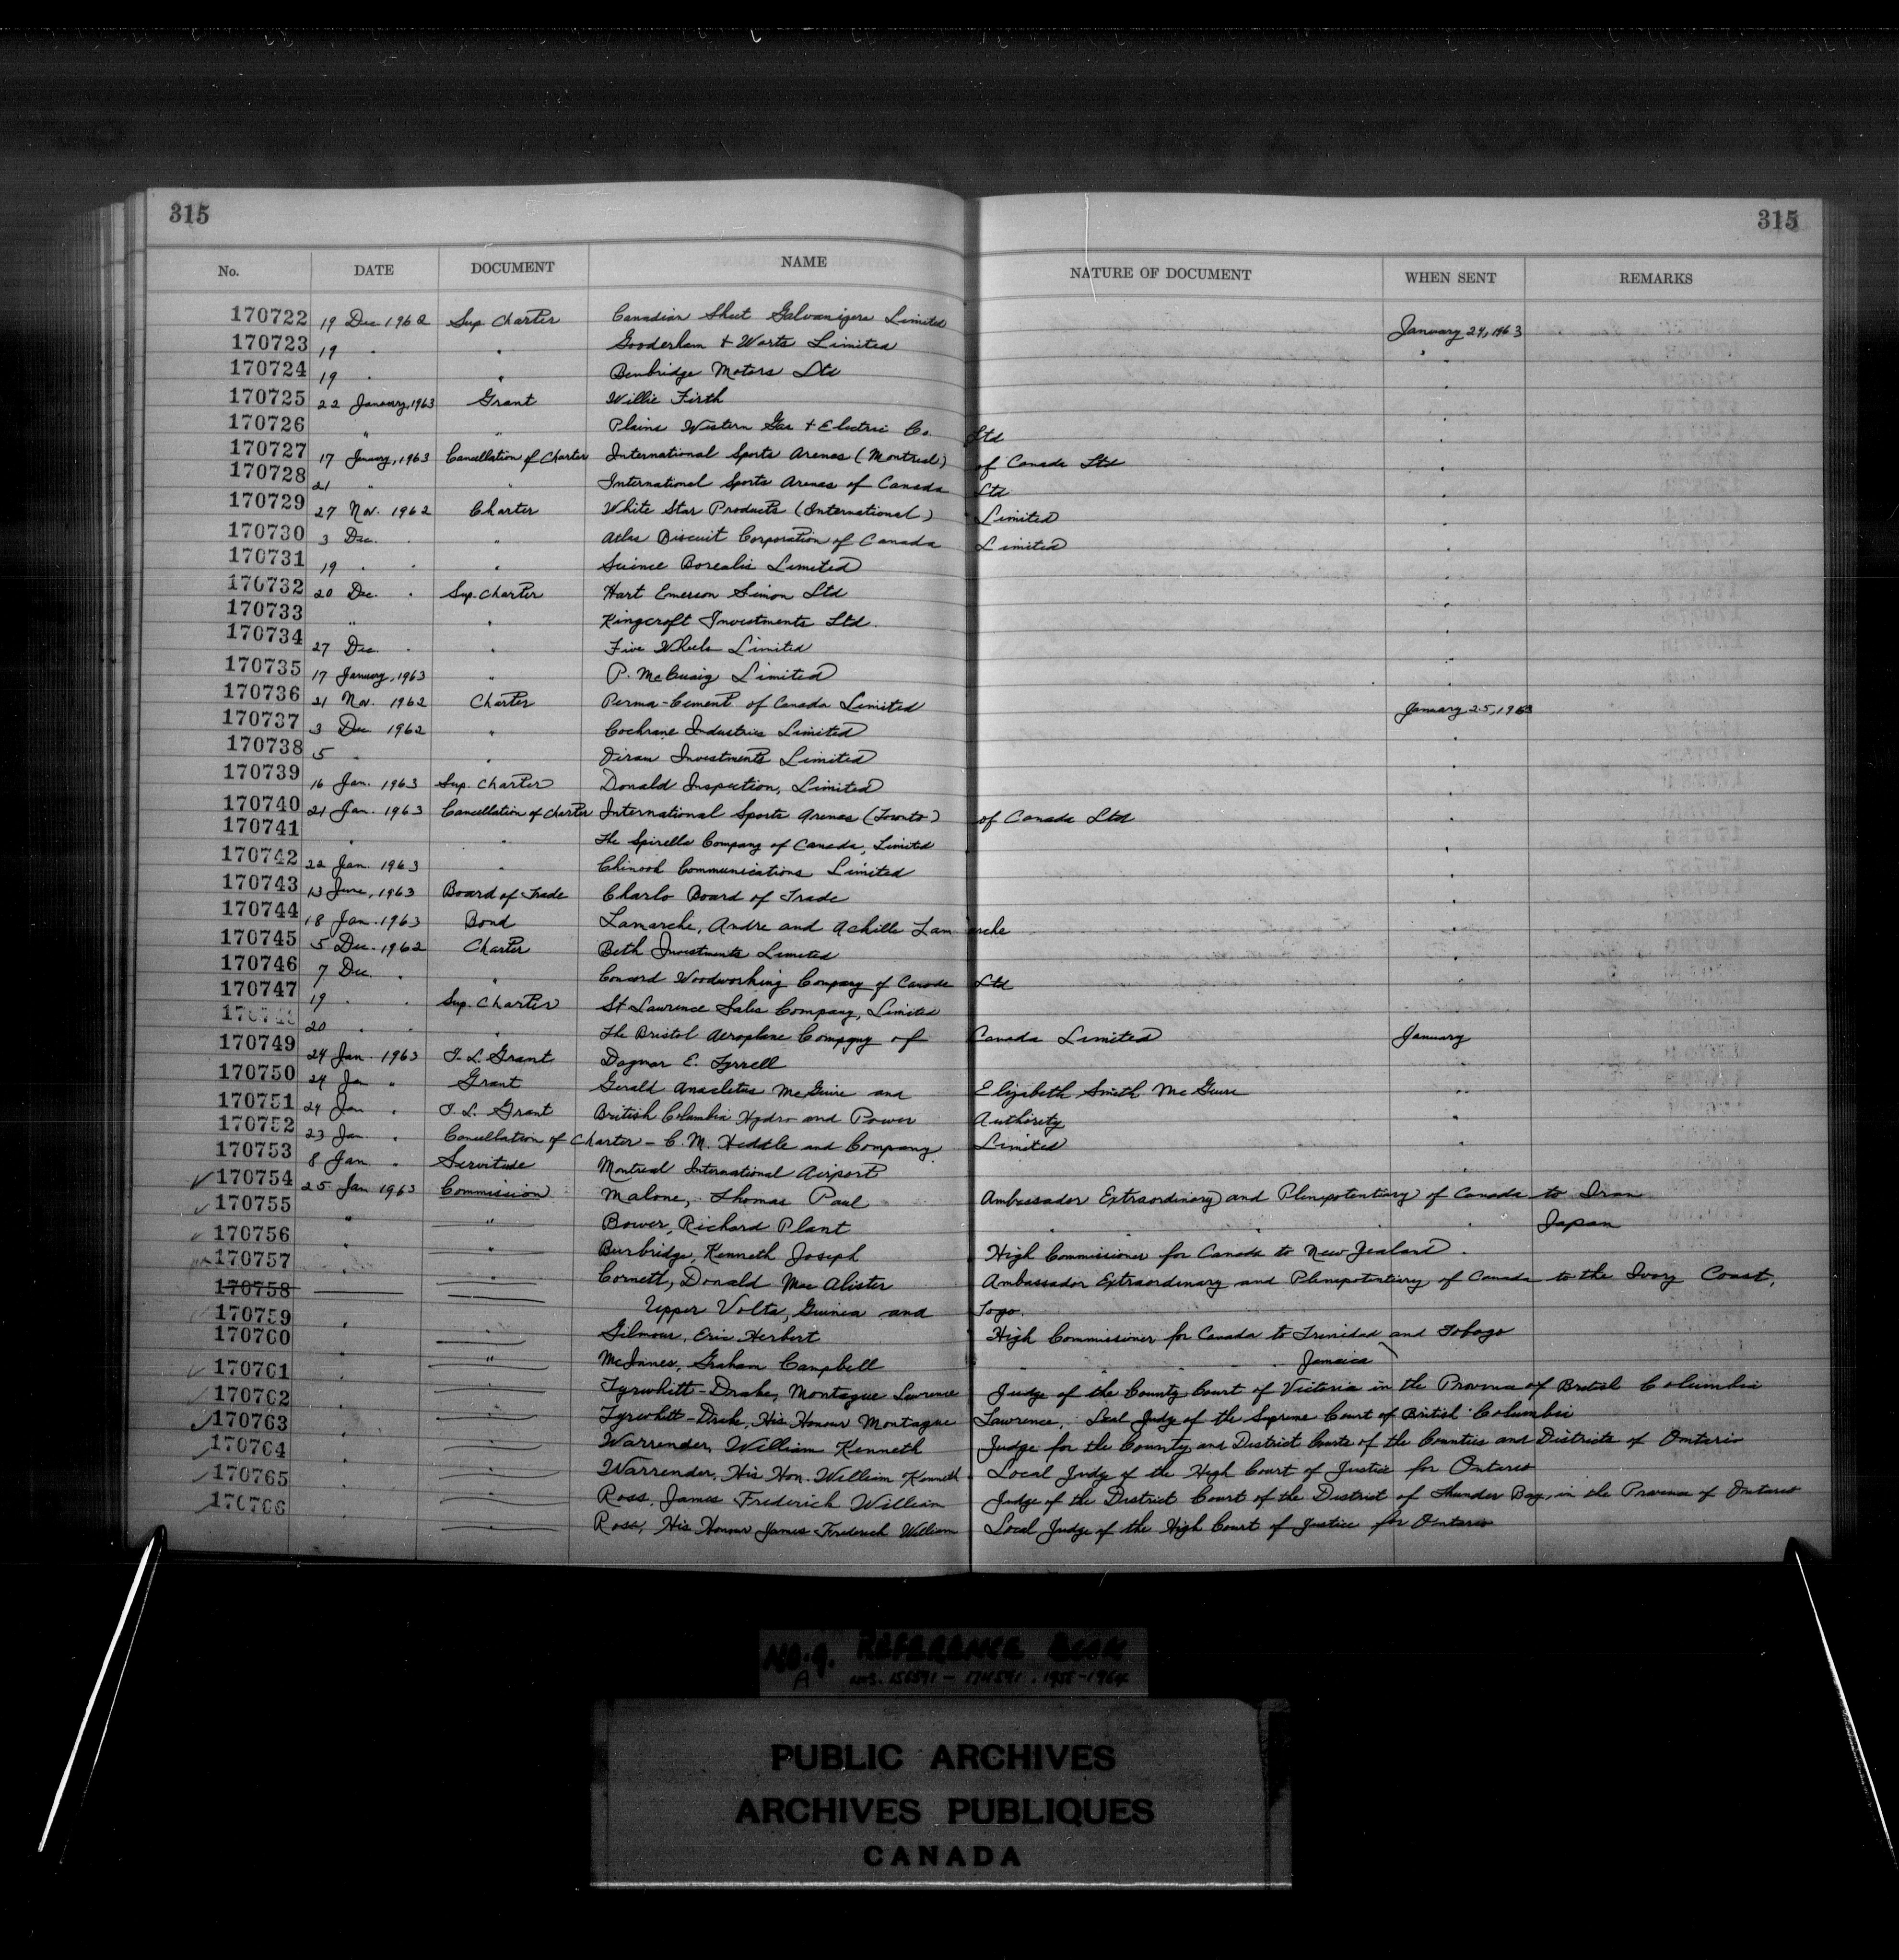 315 315
No. DATE DOCUMENT NAME NATURE OF DOCUMENT WHEN SENT REMARKS
170722 19 Dec 1962 Sup. Charter Canadian Sheet Galvanizers Limited January 24, 1963
170723 19 " " Gooderham & Worts Limited "
170724 19 " " Benbridge Motors Ltd "
170725 22 January, 1963 Grant Willie Firth "
170726 " " Plains Western Gas & Electric Co. Ltd "
170727 17 January, 1963 Cancellation of Charter International Sports Arenas (Montreal) of Canada Ltd "
170728 21 " " International Sports Arenas of Canada Ltd "
170729 27 Nov. 1962 Charter White Star Products (International) Limited "
170730 3 Dec. " " Atlas Biscuit Corporation of Canada Limited "
170731 19 " " " Science Borealis Limited "
170732 20 Dec. " Sup. Charter Hart Emerson Simon Ltd "
170733 " " Kingcroft Investments Ltd. "
170734 27 Dec. " " Five Wheels Limited "
170735 17 January, 1963 " P. McCuaig Limited "
170736 21 Nov. 1962 Charter Perma-Cement of Canada Limited January 25, 1963
170737 3 Dec 1962 " Cochrane Industries Limited "
170738 5 " " Diran Investments Limited "
170739 16 Jan. 1963 Sup. Charter Donald Inspection, Limited "
170740 21 Jan. 1963 Cancellation of Charter International Sports Arenas (Toronto) of Canada Ltd "
170741 " " The Spirella Company of Canada, Limited "
170742 22 Jan. 1963 " Chinook Communications Limited "
170743 13 June, 1963 Board of Trade Charlo Board of Trade "
170744 18 Jan. 1963 Bond Lamarche, Andre and Achille Lamarche "
170745 5 Dec. 1962 Charter Beth Investments Limited "
170746 7 Dec. " " Concord Woodworking Company of Canada Ltd "
170747 19 " " Sup. Charter St Lawrence Sales Company, Limited "
170748 20 " " " The Bristol Aeroplane Company of Canada Limited January
170749 24 Jan. 1963 T. L. Grant Dagmar E. Tyrrell
170750 24 Jan " Grant Gerald Anacletus McGuire and Elizabeth Smith McGuire "
170751 24 Jan " T. L. Grant British Columbia Hydro and Power Authority "
170752 23 Jan. " Cancellation of Charter - C. M. Heddle and Company Limited "
170753 8 Jan. " Servitude Montreal International Airport "
170754 25 Jan 1963 Commission Malone, Thomas Paul Ambassador Extraordinary and Plenipotentiary of Canada to Iran
170755 " " Bower, Richard Plant " " " " Japan
170756 " " Burbridge, Kenneth Joseph High Commissioner for Canada to New Zealand.
170757 " " Cornett, Donald MacAlister Ambassador Extraordinary and Plenipotentiary of Canada to the Ivory Coast,
170758 Upper Volta, Guinea and Togo.
170759 " " Gilmour, Eric Herbert High Commissioner for Canada to Trinidad and Tobago
170760 " " McInnes, Graham Campbell " " Jamaica
170761 " " Tyrwhitt-Drake, Montague Lawrence Judge of the County Court of Victoria in the Province of British Columbia
170762 " " Tyrwhitt-Drake, His Honour Montague Lawrence, Local Judge of the Supreme Court of British Columbia
170763 " " Warrender, William Kenneth Judge for the County and District Courts of the Counties and Districts of Ontario
170764 " " Warrender, His Hon. William Kenneth Local Judge of the High Court of Justice for Ontario
170765 " " Ross, James Frederick William Judge of the District Court of the District of Thunder Bay, in the Province of Ontario
170766 " " Ross, His Honour James Frederick William Local Judge of the High Court of Justice for Ontario
NO. 9. REFERENCE BOOK
A NOS. 156591 - 174591. 1955-1964
PUBLIC ARCHIVES
ARCHIVES PUBLIQUES
CANADA